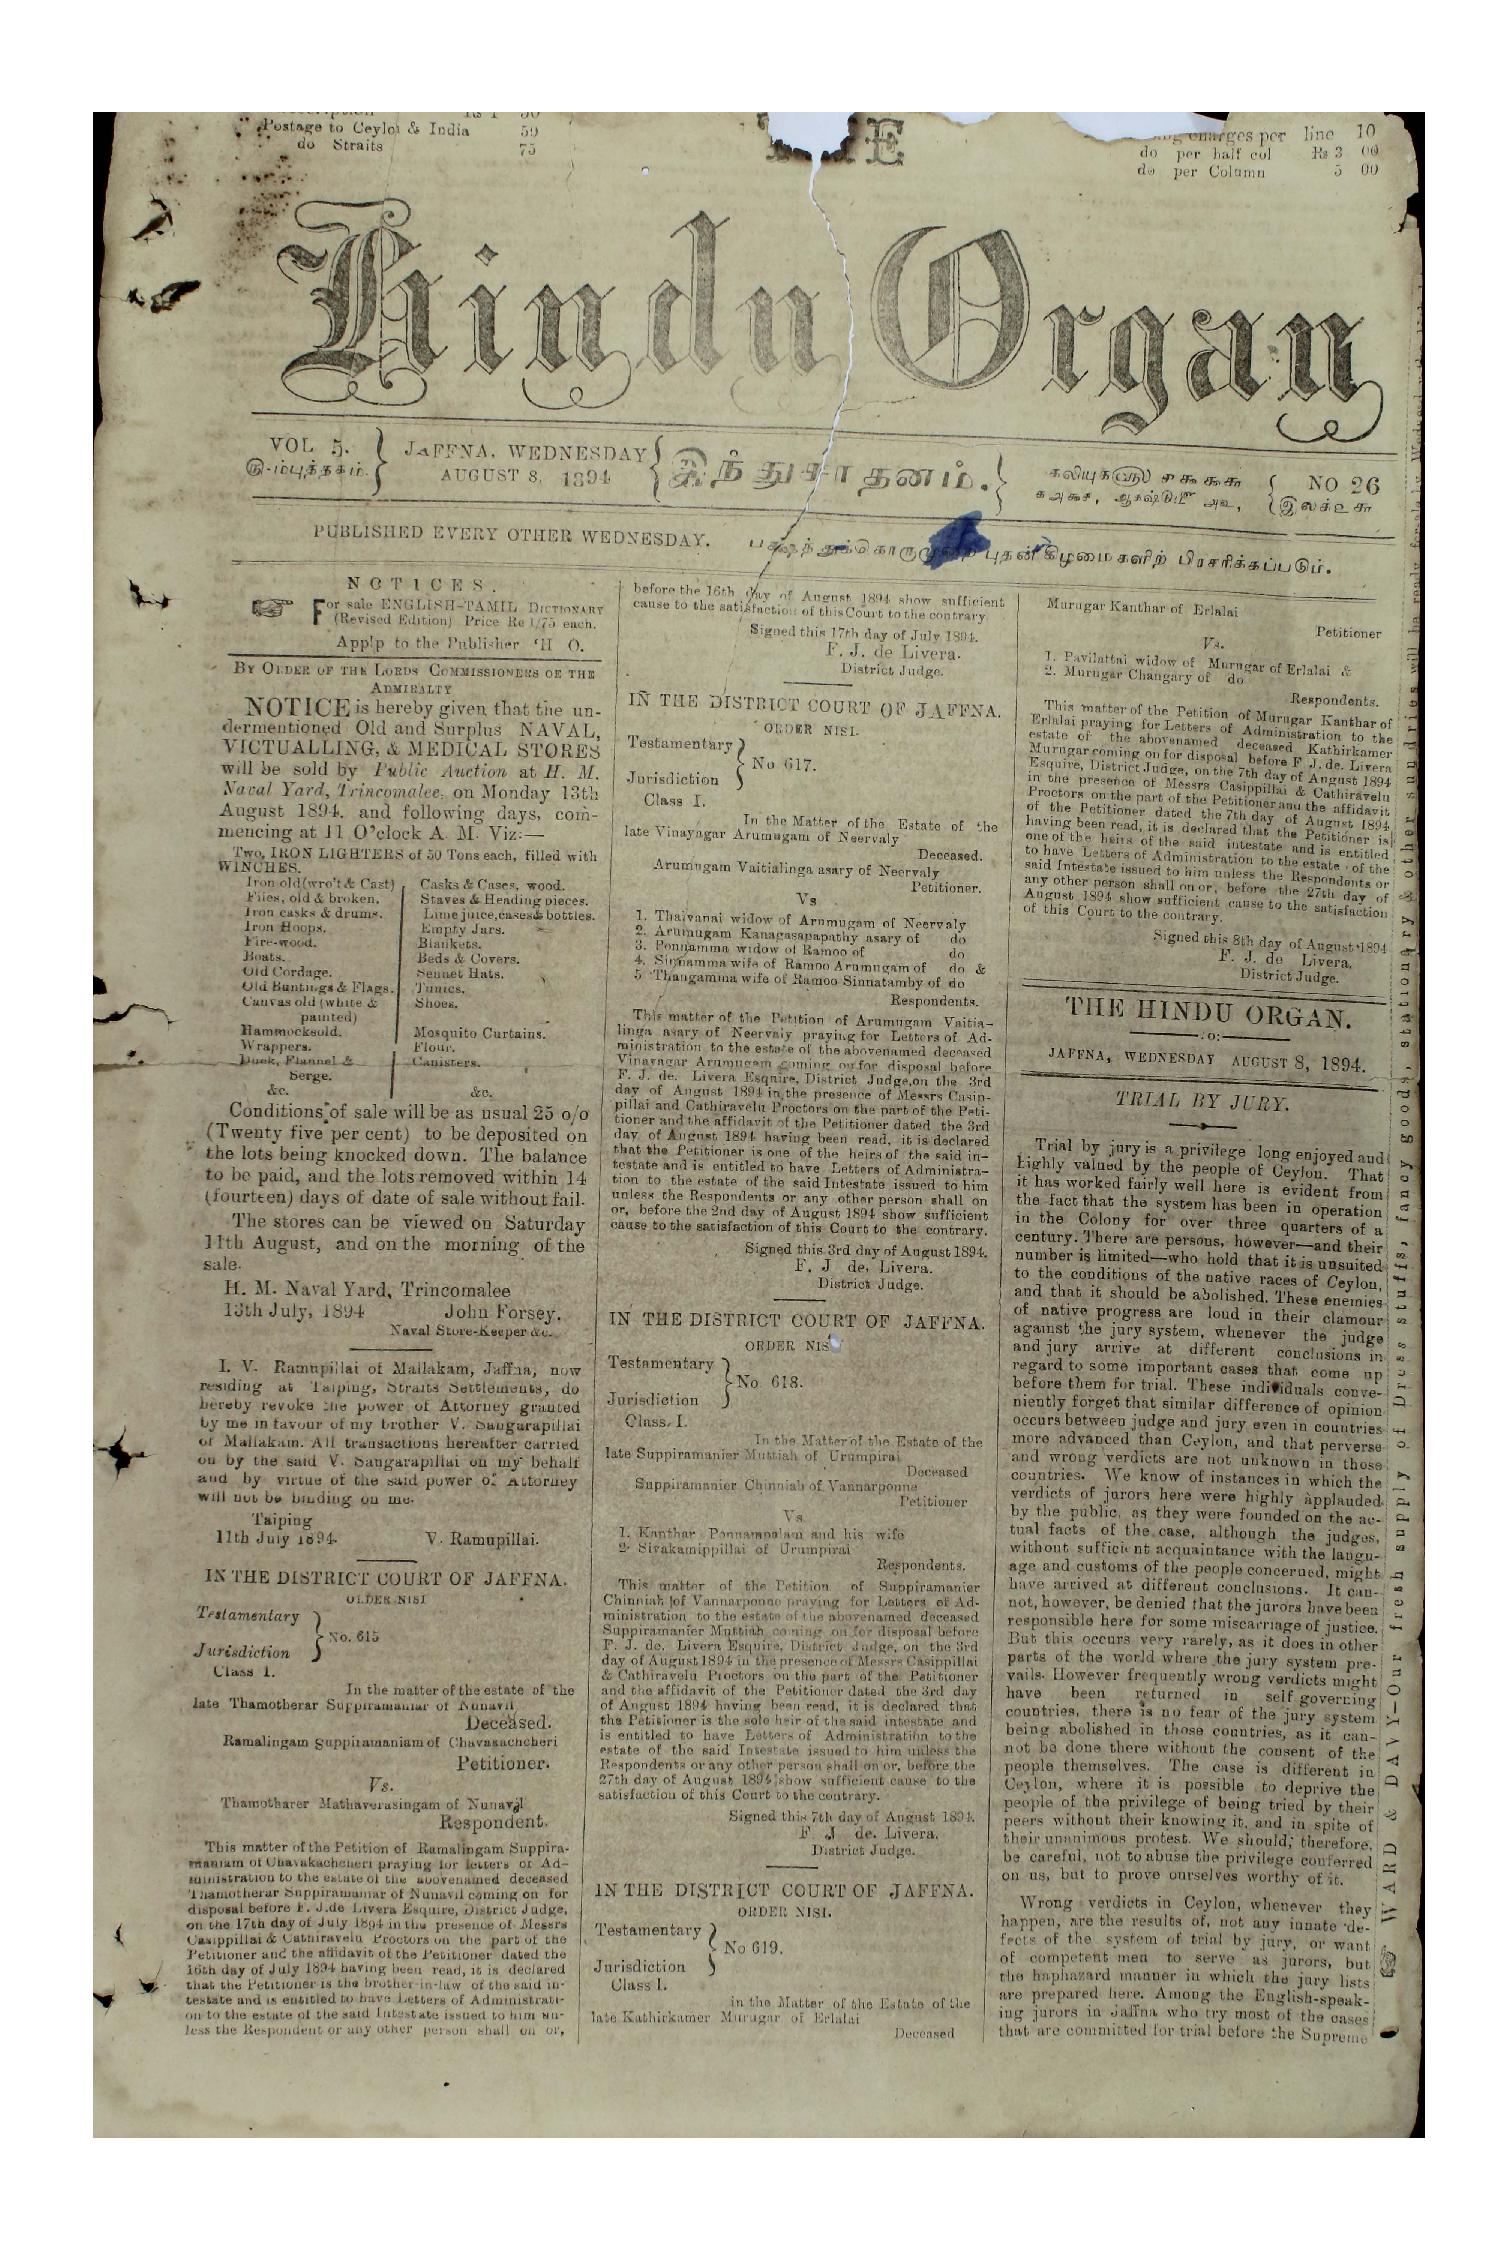 Postage to Ceylon & India 50
do Straits 75
charges per line 10
do per half col Rs 3 00
do per Column 5 00
Hindu Organ
VOL 5.
JAFFNA, WEDNESDAY
AUGUST 8, 1894
இந்துசாதனம்.
NO 26
PUBLISHED EVERY OTHER WEDNESDAY.
புதன் கிழமைகளிற் பிரசரிக்கப்படும்.
NOTICES.
For sale ENGLISH-TAMIL DICTIONARY
(Revised Edition) Price Re 1/75 each.
Applp to the Publisher 'H O.
BY ORDER OF THE LORDS COMMISSIONERS OF THE
ADMIRALTY
NOTICE is hereby given that the un-
dermentioned Old and Surplus NAVAL,
VICTUALLING, & MEDICAL STORES
will be sold by Public Auction at H. M.
Naval Yard, Trincomalee, on Monday 13th
August 1894, and following days, com-
mencing at 11 O'clock A. M. Viz:—
Two, IRON LIGHTERS of 50 Tons each, filled with
WINCHES.
Iron old (wro't & Cast)
Files, old & broken.
Iron casks & drums.
Iron Hoops.
Fire-wood.
Boats.
Old Cordage.
Old Buntings & Flags.
Canvas old (white &
painted)
Hammocksold.
Wrappers.
Duck, Flannel &
Serge.
&c.
Casks & Cases, wood.
Staves & Heading pieces.
Lime juice, cases & bottles.
Empty Jars.
Blankets.
Beds & Covers.
Sennet Hats.
Tunics.
Shoes.
Mosquito Curtains.
Flour.
Canisters.
&c.
Conditions of sale will be as usual 25 o/o
(Twenty five per cent) to be deposited on
the lots being knocked down. The balance
to be paid, and the lots removed within 14
(fourteen) days of date of sale without fail.
The stores can be viewed on Saturday
11th August, and on the morning of the
sale.
H. M. Naval Yard, Trincomalee
13th July, 1894 John Forsey.
Naval Store-Keeper &c.
I. V. Ramupillai of Mallakam, Jaffna, now
residing at Taiping, Straits Settlements, do
hereby revoke the power of Attorney granted
by me in favour of my brother V. Sangarapillai
of Mallakam. All transactions hereafter carried
on by the said V. Sangarapillai on my behalf
and by virtue of the said power of Attorney
will not be binding on me.
Taiping
11th July 1894. V. Ramupillai.
IN THE DISTRICT COURT OF JAFFNA.
ORDER NISI
Testamentary
Jurisdiction
No. 615
Class I.
In the matter of the estate of the
late Thamotherar Suppiramaniar of Nunavil
Deceased.
Ramalingam Suppiramaniam of Chavakachcheri
Petitioner.
Vs.
Thamotharer Mathaverasingam of Nunavil
Respondent.
This matter of the Petition of Ramalingam Suppira-
maniam of Chavakachcheri praying for letters of Ad-
ministration to the estate of the abovenamed deceased
Thamotherar Suppiramaniar of Nunavil coming on for
disposal before F. J. de Livera Esquire, District Judge,
on the 17th day of July 1894 in the presence of Messrs
Casippillai & Cathiravelu Proctors on the part of the
Petitioner and the affidavit of the Petitioner dated the
16th day of July 1894 having been read, it is declared
that the Petitioner is the brother-in-law of the said in-
testate and is entitled to have Letters of Administrati-
on to the estate of the said Intestate issued to him un-
less the Respondent or any other person shall on or,
before the 16th day of August 1894 show sufficient
cause to the satisfaction of this Court to the contrary.
Signed this 17th day of July 1894.
F. J. de Livera.
District Judge.
IN THE DISTRICT COURT OF JAFFNA.
ORDER NISI.
Testamentary
Jurisdiction
No 617.
Class I.
In the Matter of the Estate of the
late Vinayagar Arumugam of Neervaly
Deceased.
Arumugam Vaitialinga asary of Neervaly
Petitioner.
Vs
1. Thaivanai widow of Arumugam of Neervaly
2. Arumugam Kanagasapapathy asary of do
3. Ponnamma widow of Ramoo of do
4. Sinnamma wife of Ramoo Arumugam of do &
5 Thangamma wife of Ramoo Sinnatamby of do
Respondents.
This matter of the Petition of Arumugam Vaitia-
linga asary of Neervaly praying for Letters of Ad-
ministration to the estate of the abovenamed deceased
Vinayagar Arumugam coming on for disposal before
F. J. de. Livera Esquire, District Judge, on the 3rd
day of August 1894 in the presence of Messrs Casip-
pillai and Cathiravelu Proctors on the part of the Peti-
tioner and the affidavit of the Petitioner dated the 3rd
day of August 1894 having been read, it is declared
that the Petitioner is one of the heirs of the said in-
testate and is entitled to have Letters of Administra-
tion to the estate of the said Intestate issued to him
unless the Respondents or any other person shall on
or, before the 2nd day of August 1894 show sufficient
cause to the satisfaction of this Court to the contrary.
Signed this 3rd day of August 1894.
F. J de, Livera.
District Judge.
IN THE DISTRICT COURT OF JAFFNA.
ORDER NIS
Testamentary
Jurisdiction
No 618.
Class. I.
In the Matter of the Estate of the
late Suppiramanier Muttiah of Urumpirai
Deceased
Suppiramanier Chinniah of Vannarponne
Petitioner
Vs
1. Kanthar Ponnampalam and his wife
2. Sivakamippillai of Urumpirai
Respondents.
This matter of the Petition of Suppiramanier
Chinniah of Vannarponne praying for Letters of Ad-
ministration to the estate of the abovenamed deceased
Suppiramanier Muttiah coming on for disposal before
F. J. de. Livera Esquire, District Judge, on the 3rd
day of August 1894 in the presence of Messrs Casippillai
& Cathiravelu Proctors on the part of the Petitioner
and the affidavit of the Petitioner dated the 3rd day
of August 1894 having been read, it is declared that
the Petitioner is the sole heir of the said intestate and
is entitled to have Letters of Administration to the
estate of the said Intestate issued to him unless the
Respondents or any other person shall on or, before the
27th day of August 1894 show sufficient cause to the
satisfaction of this Court to the contrary.
Signed this 7th day of August 1894.
F. J de. Livera.
District Judge.
IN THE DISTRICT COURT OF JAFFNA.
ORDER NISI.
Testamentary
Jurisdiction
No 619.
Class I.
in the Matter of the Estate of the
late Kathirkamer Murugar of Erlalai
Deceased
Murugar Kanthar of Erlalai
Petitioner
Vs.
1. Pavilattai widow of Murugar of Erlalai &
2. Murugar Changary of do
Respondents.
This matter of the Petition of Murugar Kanthar of
Erlalai praying for Letters of Administration to the
estate of the abovenamed deceased Kathirkamer
Murugar coming on for disposal before F J. de. Livera
Esquire, District Judge, on the 7th day of August 1894
in the presence of Messrs Casippillai & Cathiravelu
Proctors on the part of the Petitioner and the affidavit
of the Petitioner dated the 7th day of August 1894
having been read, it is declared that the Petitioner is
one of the heirs of the said intestate and is entitled
to have Letters of Administration to the estate of the
said Intestate issued to him unless the Respondents or
any other person shall on or, before the 27th day of
August 1894 show sufficient cause to the satisfaction
of this Court to the contrary.
Signed this 8th day of August 1894
F. J. de Livera,
District Judge.
THE HINDU ORGAN.
:o:
JAFFNA, WEDNESDAY AUGUST 8, 1894.
TRIAL BY JURY.
Trial by jury is a privilege long enjoyed and
highly valued by the people of Ceylon. That
it has worked fairly well here is evident from
the fact that the system has been in operation
in the Colony for over three quarters of a
century. There are persons, however—and their
number is limited—who hold that it is unsuited
to the conditions of the native races of Ceylon,
and that it should be abolished. These enemies
of native progress are loud in their clamour
against the jury system, whenever the judge
and jury arrive at different conclusions in
regard to some important cases that come up
before them for trial. These individuals conve-
niently forget that similar difference of opinion
occurs between judge and jury even in countries
more advanced than Ceylon, and that perverse
and wrong verdicts are not unknown in those
countries. We know of instances in which the
verdicts of jurors here were highly applauded
by the public, as they were founded on the ac-
tual facts of the case, although the judges,
without sufficient acquaintance with the langu-
age and customs of the people concerned, might
have arrived at different conclusions. It can-
not, however, be denied that the jurors have been
responsible here for some miscarriage of justice.
But this occurs very rarely, as it does in other
parts of the world where the jury system pre-
vails. However frequently wrong verdicts might
have been returned in self governing
countries, there is no fear of the jury system
being abolished in those countries, as it can-
not be done there without the consent of the
people themselves. The case is different in
Ceylon, where it is possible to deprive the
people of the privilege of being tried by their
peers without their knowing it, and in spite of
their unanimous protest. We should, therefore,
be careful, not to abuse the privilege conferred
on us, but to prove ourselves worthy of it.
Wrong verdicts in Ceylon, whenever they
happen, are the results of, not any innate de-
fects of the system of trial by jury, or want
of competent men to serve as jurors, but
the haphazard manner in which the jury lists
are prepared here. Among the English-speak-
ing jurors in Jaffna who try most of the cases
that are committed for trial before the Supreme
WARD & DAVY—Our fresh supply of Dress stuffs, fancy goods, stationary & other sundries will be ready